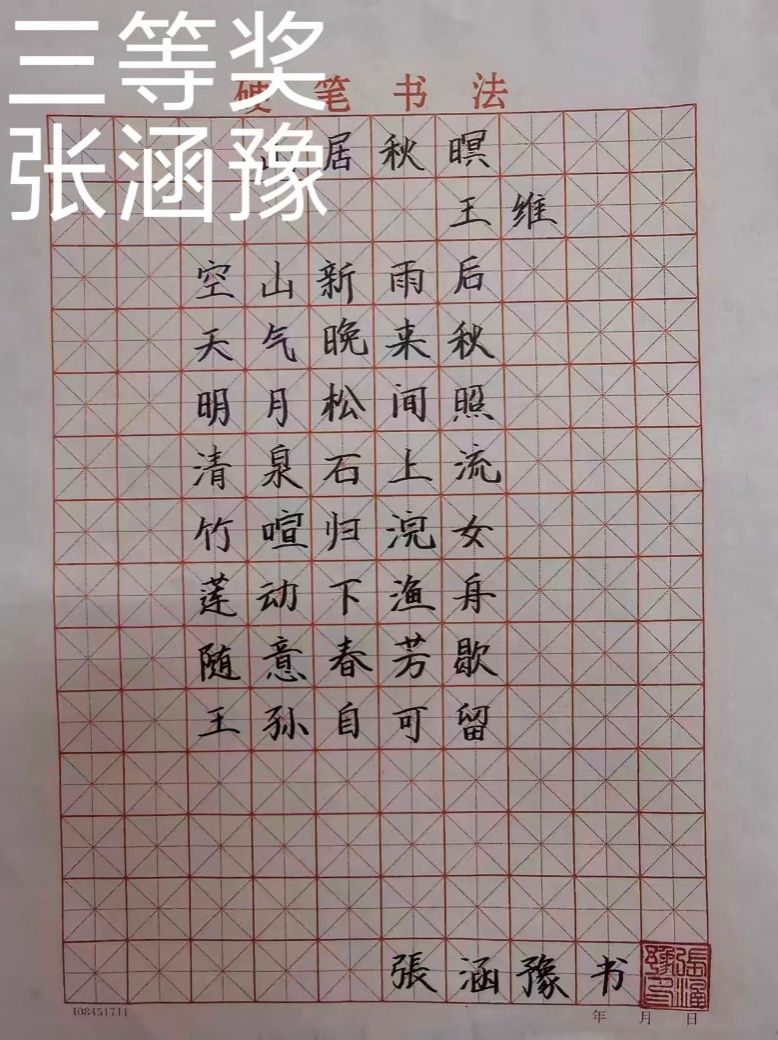 三等奖
张涵豫
硬笔书法
山居秋暝
王维
空山新雨后
天气晚来秋
明月松间照
清泉石上流
竹喧归浣女
莲动下渔舟
随意春芳歇
王孙自可留
張涵豫书
張涵豫印
108451711
年 月 日